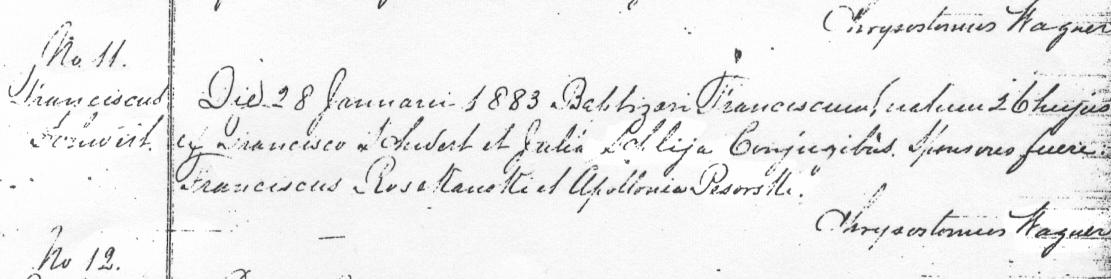 Chrysostomus Wagner
No 11.
Franciscus
Schwert.
Die 28 Januarii 1883 Baptizavi Franciscum, natum 26 hujus
ex Francisco Schwert et Julia Conjugibus. Sponsores fuere
Franciscus et Apollonia
Chrysostomus Wagner
No 12.